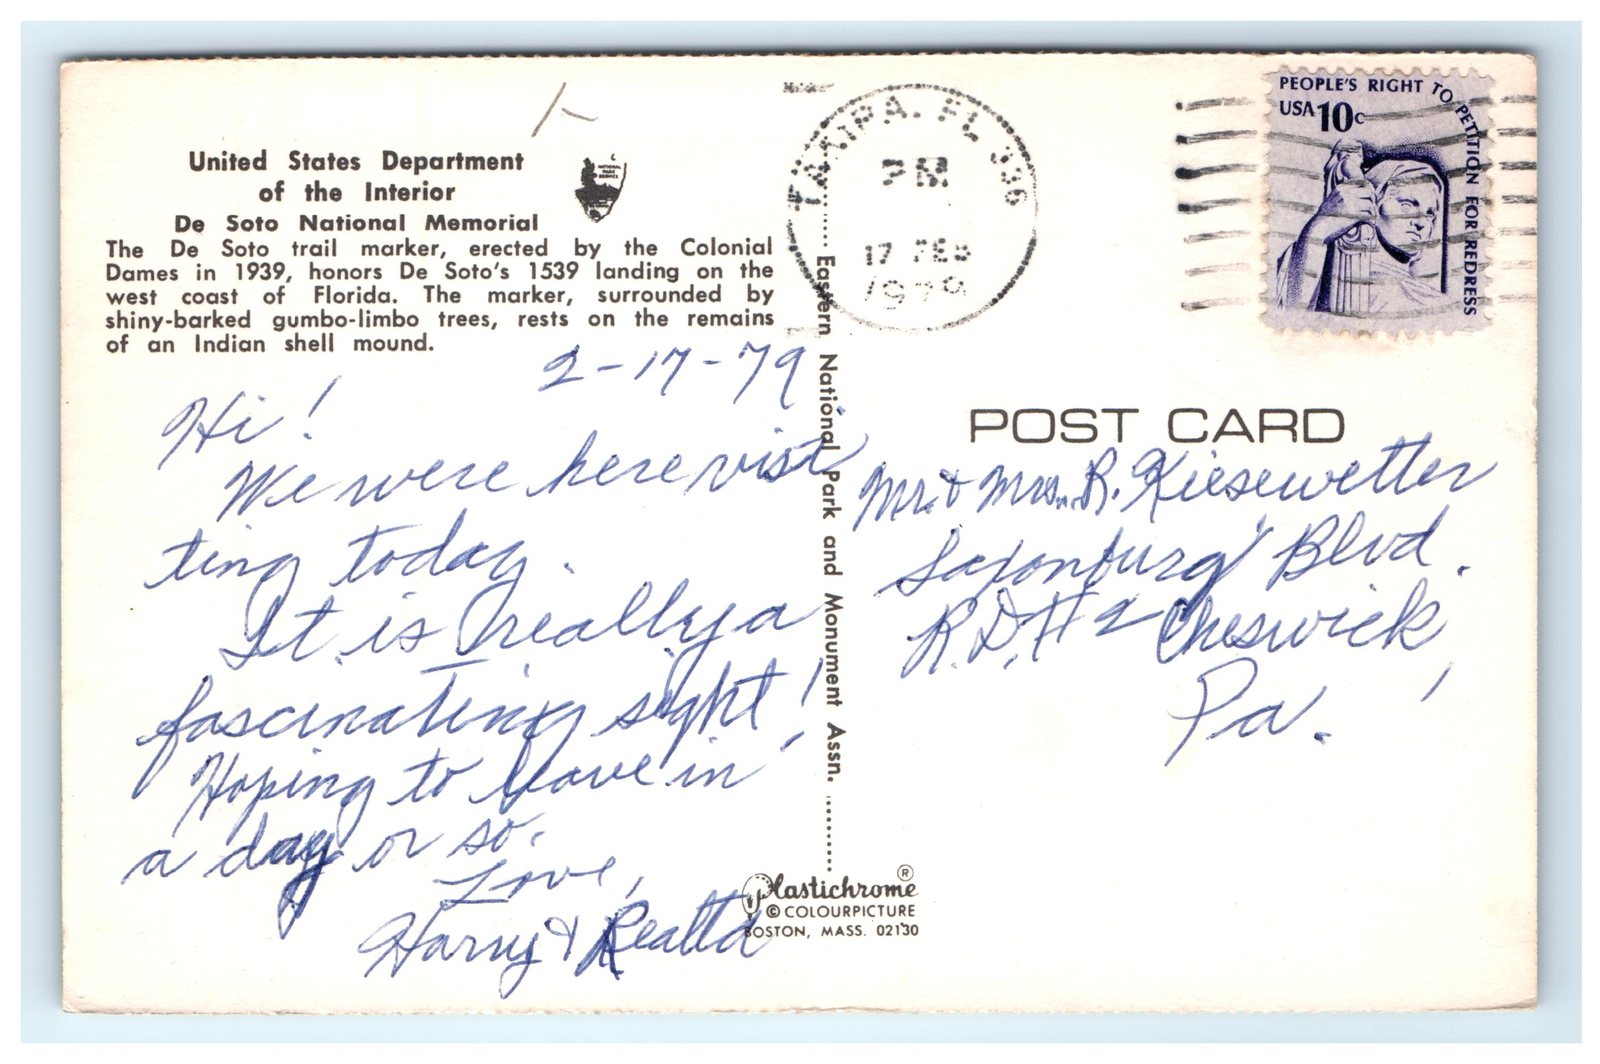 United States Department
of the Interior
De Soto National Memorial
The De Soto trail marker, erected by the Colonial
Dames in 1939, honors De Soto's 1539 landing on the
west coast of Florida. The marker, surrounded by
shiny-barked gumbo-limbo trees, rests on the remains
of an Indian shell mound.
NATIONAL
PARK
SERVICE
2-17-79
Hi!
We were here visi
ting today.
It is really a
fascinating sight!
Hoping to leave in
a day or so.
Love,
Harry &
Eastern National Park and Monument Assn.
Plastichrome ®
© COLOURPICTURE
BOSTON, MASS. 02130
TAMPA, FL 336
PM
17 FEB
1979
PEOPLE'S RIGHT TO PETITION FOR REDRESS
USA 10c
POST CARD
Mr. & Mrs. R. Kiesewetter
Saxonburg Blvd.
R.D.#2 Cheswick,
Pa.